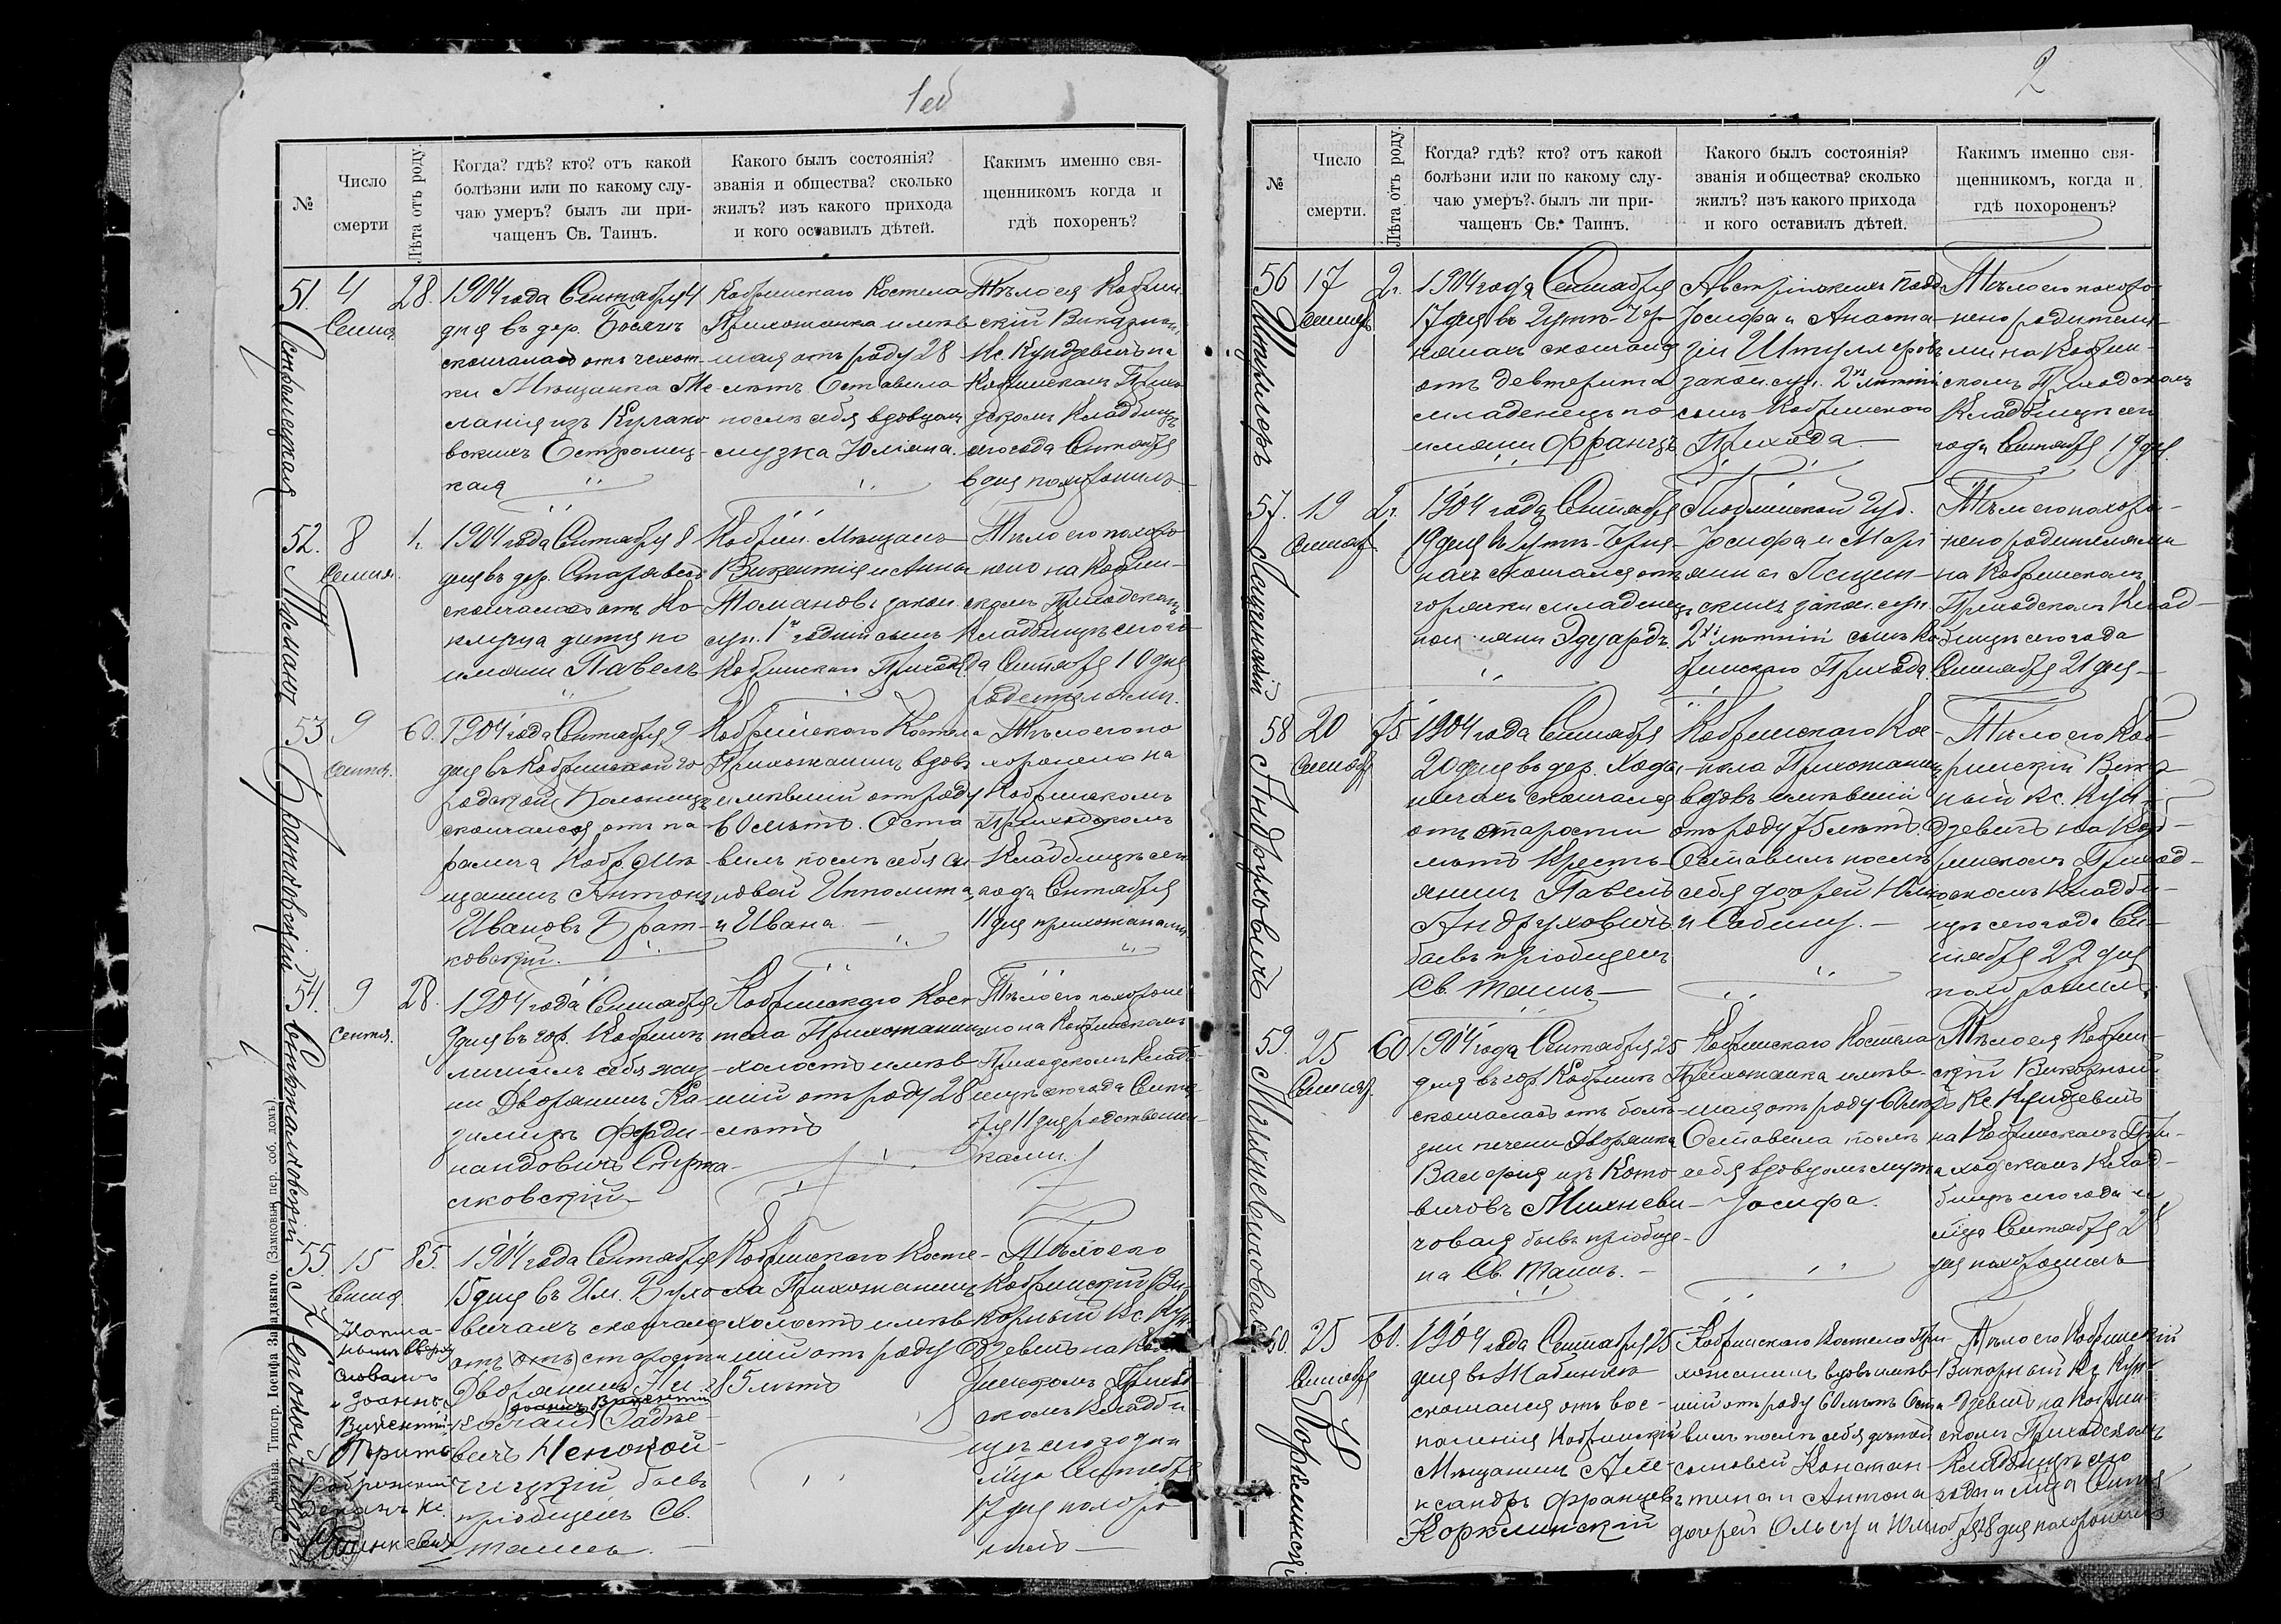 1об
№
Число
смерти
Лѣта отъ роду.
Когда? гдѣ? кто? отъ какой
болѣзни или по какому слу-
чаю умеръ? былъ ли при-
чащенъ Св. Таинъ.
Какого былъ состоянія?
званія и общества? сколько
жилъ? изъ какого прихода
и кого оставилъ дѣтей.
Какимъ именно свя-
щенникомъ когда и
гдѣ похоренъ?
51.
Остромецкая
4
Сентя
28.
1904 года Сентября 4
дня въ дер.
скончалась отъ чехот-
ки Мѣщанка Ме-
ланія изъ
вскихъ Остромец-
кая
Кобринскаго Костела
Прихожанка имѣв-
шая отъ роду 28
лѣтъ Оставила
послѣ себя вдовцомъ
мужа Юліана.
Тѣло ея Кобрин-
скій Викарный
Кс. Кундзевичъ на
Кобринскомъ Прихо-
дскомъ Кладбищѣ
сего года Сентября
6 дня похоронилъ
52.
Томанъ
8
Сентя.
1г.
1904 года Сентября 8
дня въ дер. Старавесь
скончалось отъ Ко-
клуша дитя по
имени Павелъ
Кобрин. Мѣщанъ
Викентія и Анны
Томановъ закон.
суп. 1 годній сынъ
Кобринскаго Прихода
Тѣло его похоро-
нено на Кобрин-
скомъ Приходскомъ
Кладбищѣ сего го-
да Сентября 10 дня
родителями.
53
Братковскій
9
Сентя.
60.
1904 года Сентября 9
дня въ Кобринской го-
родской Больницѣ
скончался отъ па-
ралича Кобр. Мѣ-
щанинъ Антонъ
Ивановъ Брат-
ковскій.
Кобринскаго Костела
Прихожанинъ вдовъ
имѣвшій отъ роду
60 лѣтъ. Оста-
вилъ послѣ себя сы-
новей Ипполита
и Ивана
Тѣло его по-
хоронено на
Кобринскомъ
Приходскомъ
Кладбищѣ сего
года Сентября
11 дня прихожанами
54.
9
Сентя.
28.
1904 года Сентября
9 дня въ гор. Кобринѣ
лишилъ себя жиз-
ни Дворянинъ Ка-
зимиръ Ферди-
нандовичъ
Кобринскаго Кос-
тела Прихожанинъ
холостъ имѣв-
шій отъ роду 28
лѣтъ
Тѣло его похороне-
но на Кобринскомъ
Приходскомъ Клад-
бищѣ сего года Сентя-
бря 11 дня родственни-
ками.
55.
Непокойчицкій
15
Сентя
85.
1904 года Сентября
15 дня въ Им. Бухо-
вичахъ скончался
отъ (отъ) старости
Дворянинъ
Іоаннъ Викентій
Непокой-
чицкій бывъ
пріобщенъ Св.
таинъ.
Кобринскаго Косте-
ла Прихожанинъ
холостъ имѣв-
шій отъ роду
85 лѣтъ
Тѣло его
Кобринскій Ви-
карный Кс. Кун-
дзевичъ на Коб-
ринскомъ Приход-
скомъ Кладби-
щѣ сего года и
м-ца Сентября
17 дня похоро-
нилъ
словамъ
"Іоаннъ
Викентій"
Кобринскій
Деканъ Кс.
Типогр. Іосифа Завадзкаго. (Замковый пер. соб. домъ.)
2
№
Число
смерти.
Лѣта отъ роду.
Когда? гдѣ? кто? отъ какой
болѣзни или по какому слу-
чаю умеръ? былъ ли при-
чащенъ Св. Таинъ.
Какого былъ состоянія?
званія и общества? сколько
жилъ? изъ какого прихода
и кого оставилъ дѣтей.
Какимъ именно свя-
щенникомъ, когда и
гдѣ похороненъ?
56
Штуллеръ
17
Сентяб
2г.
1904 года Сентября
17 дня въ
скончался
отъ дефтерита
младенецъ по
имени Францъ
Австрійскихъ Подд
Іосифа и Анаста-
зіи Штуллеровъ
закон. суп. 2хъ лѣтній
сынъ Кобринскаго
Прихода.
Тѣло его похоро-
нено родителя-
ми на Кобрин-
скомъ Приходскомъ
Кладбищѣ сего
года Сентября 19 дня.
57.
Лещинскій
19
Сентяб
2г.
1904 года Сентября
19 дня въ
скончался отъ
горячки младенецъ
по имени Эдуардъ.
Люблинской губ.
Іосифа и Мар-
іанны Лещин-
скихъ закон. суп.
2хъ лѣтній сынъ Коб-
ринскаго Прихода.
Тѣло его похоро-
нено родителями
на Кобринскомъ
Приходскомъ Клад-
бищѣ сего года
Сентября 21 дня
58
Андруховичъ
20
Сентябр
75.
1904 года Сентября
20 дня въ дер. Ходы-
ничахъ скончался
отъ старости
лѣтъ Кресть-
янинъ Павелъ
Андруховичъ
бывъ пріобщенъ
Св. Таинъ
Кобринскаго Кос-
тела Прихожанинъ
вдовъ имѣвшій
отъ роду 75 лѣтъ.
Оставилъ послѣ
себя дочерей Юлію
и Сабину.
Тѣло его Коб-
ринскій Викар-
ный Кс. Кун-
дзевичъ на Коб-
ринскомъ Приход-
скомъ Кладби-
щѣ сего года Сен-
тября 22 дня
похоронилъ.
59.
Михневичовая
25
Сентяб.
60
1904 года Сентября 25
дня въ гор. Кобринѣ
скончалась отъ болѣ-
зни печени Дворянка
Валерія изъ Кото-
вичовъ Михневи-
човая бывъ пріобще-
на Св. Таинъ.
Кобринскаго Костела
Прихожанка имѣв-
шая отъ роду 60 лѣтъ
Оставила послѣ
себя вдовцомъ мужа
Іосифа.
Тѣло ея Кобрин-
скій Викарный
Кс. Кундзевичъ
на Кобринскомъ При-
ходскомъ Клад-
бищѣ сего года и
м-ца Сентября 28
дня похоронилъ
60.
Корклинскій
25
Сентября
60.
1904 года Сентября 25
дня въ Жабинкѣ
скончался отъ вос-
паленія Кобринскій
Мѣщанинъ Але-
ксандръ Францевъ
Корклинскій
Кобринскаго Костела При-
хожанинъ вдовъ имѣв-
шій отъ роду 60 лѣтъ Оста-
вилъ послѣ себя дѣтей
сыновей Констан-
тина и Антона
дочерей Ольгу и Юлію
Тѣло его Кобринскій
Викарный Кс. Кун-
дзевичъ на Кобрин-
скомъ Приходскомъ
Кладбищѣ сего
года и м-ца Сентя-
бря 28 дня похоронилъ